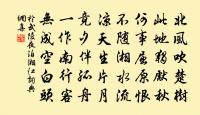 北風吹楚樹
此地獨獻秋
何事屈原恨
不隨湘水流
涼天生片月
竟夕伴孤舟
一作南行客
無成空白頭
於武陵夜泊湘江詞典
網集